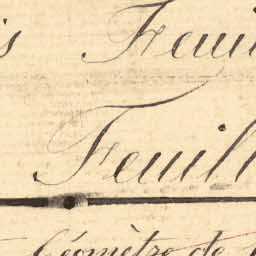 is Feuil
Feuill
Géomètre de